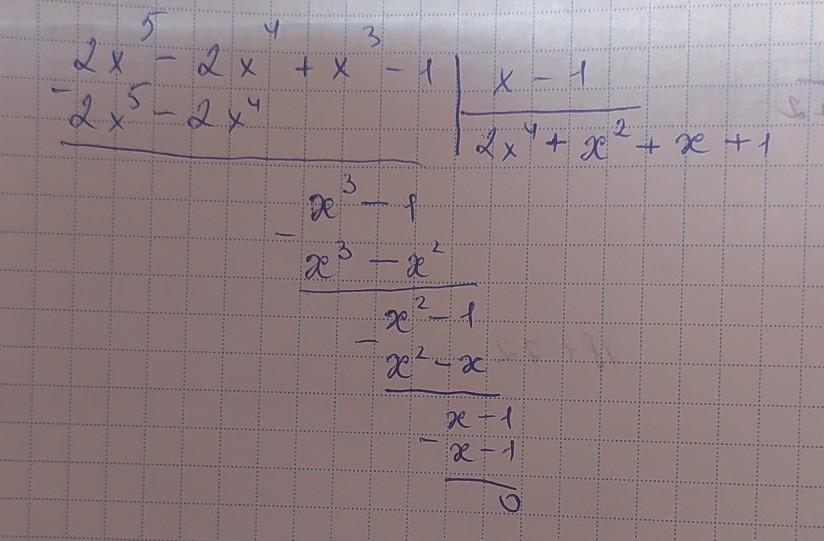 2x⁵ - 2x⁴ + x³ - 1 | x - 1
- 2x⁵ - 2x⁴ | 2x⁴ + x² + x + 1
x³ - 1
-
x³ - x²
x² - 1
-
x² - x
x - 1
- x - 1
0